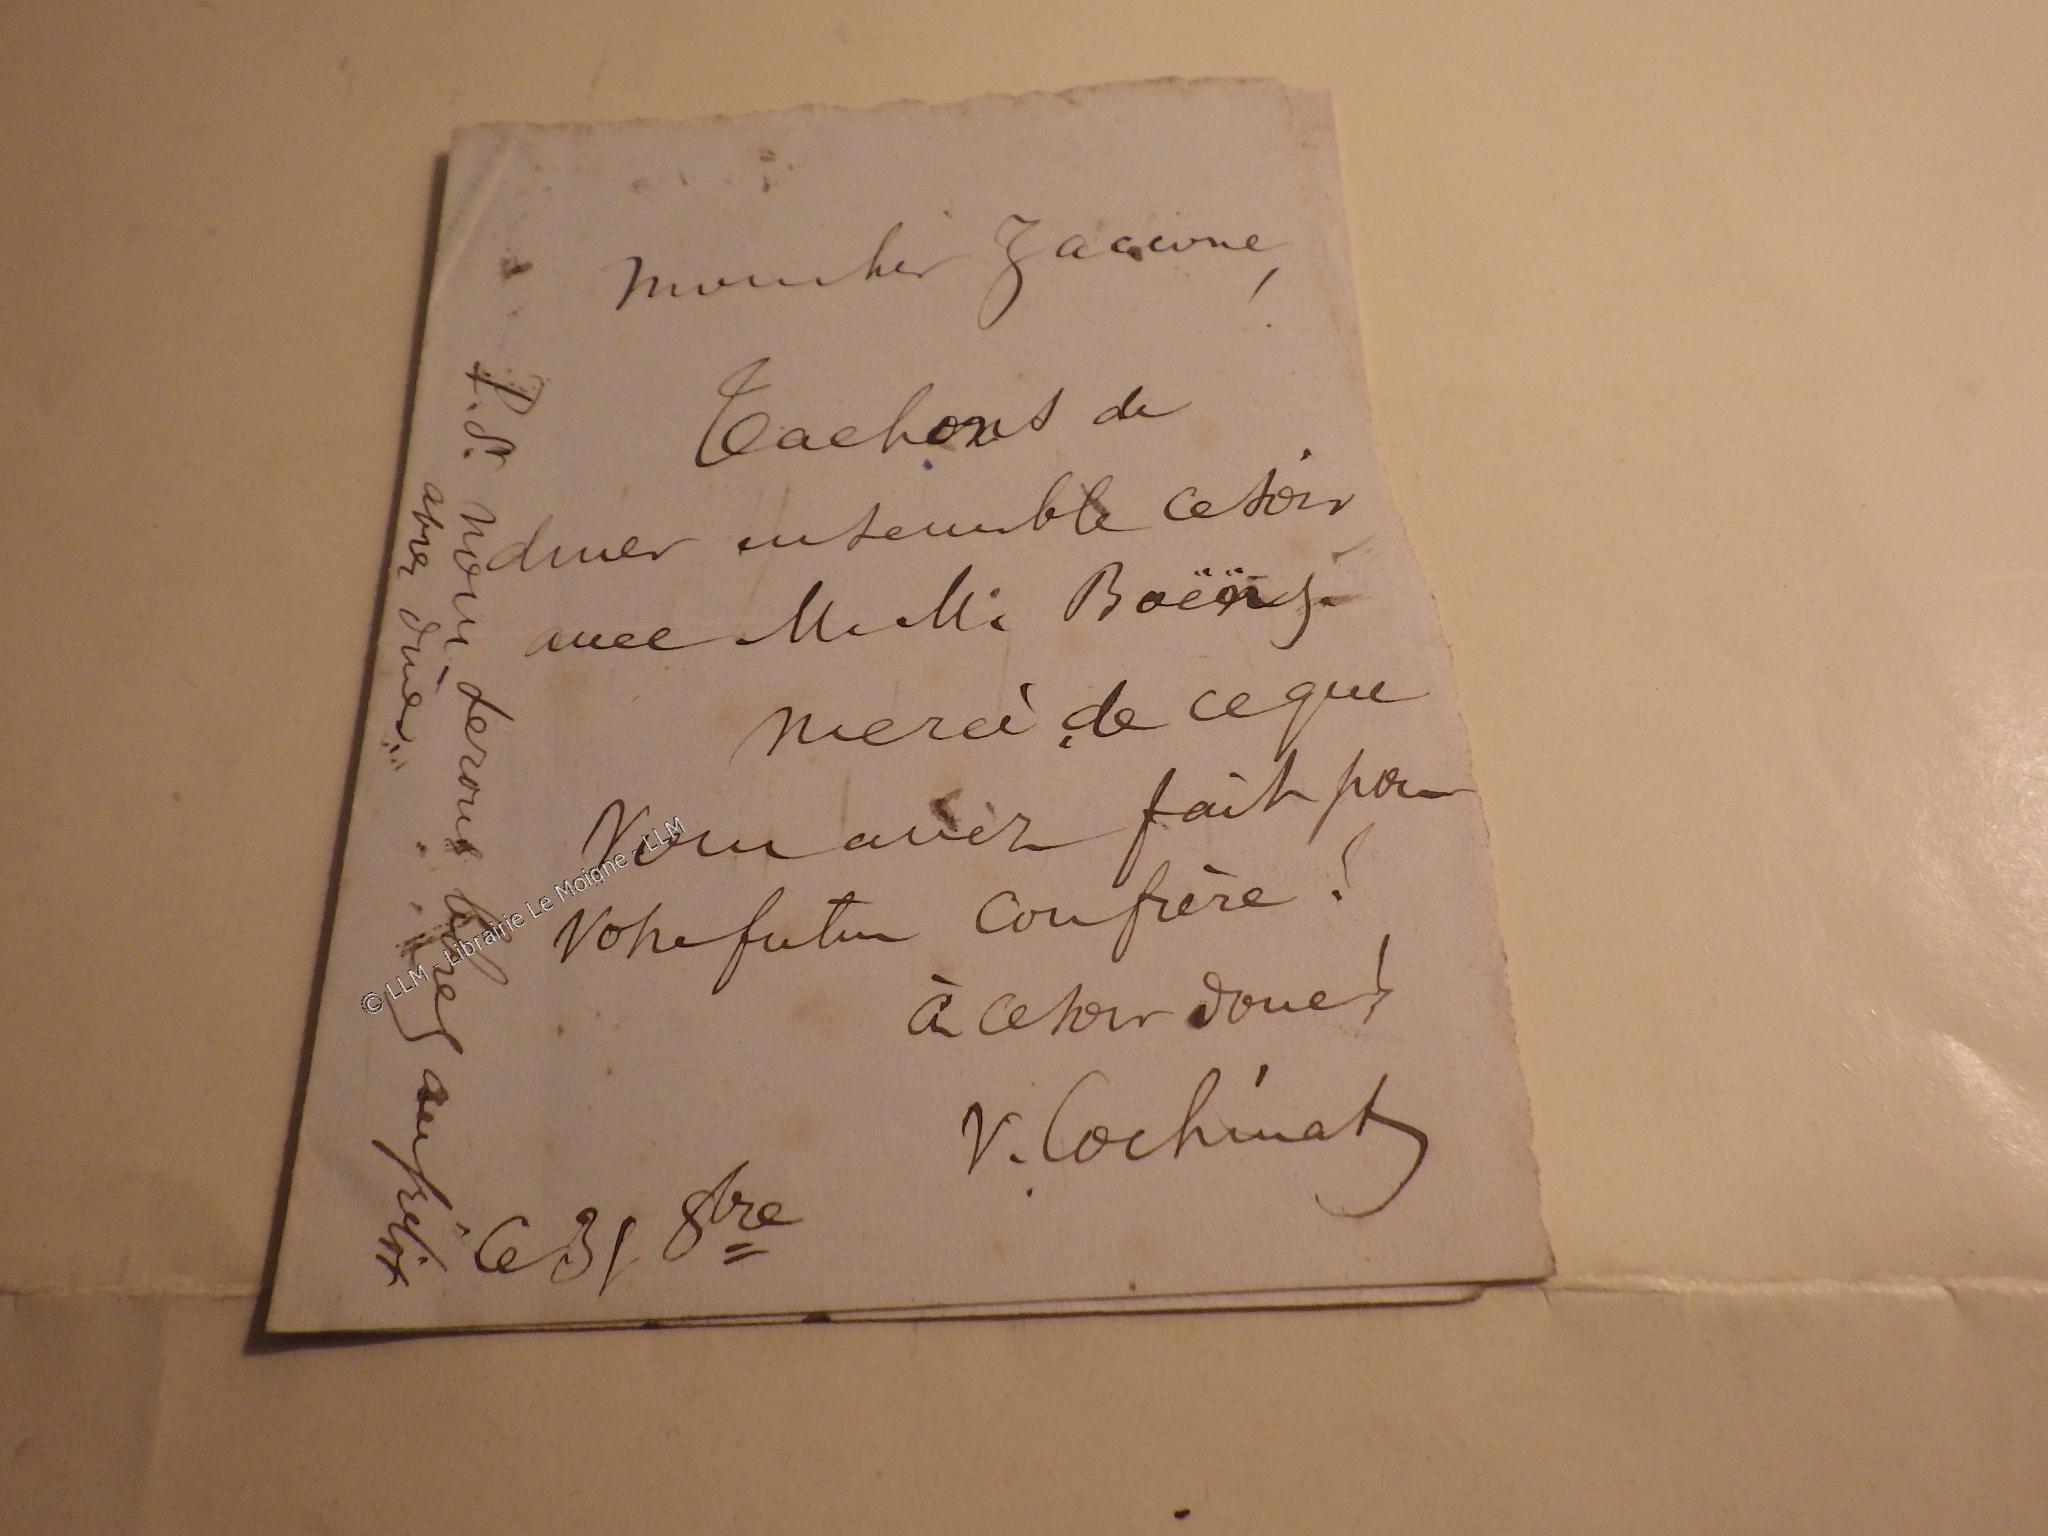 Mon cher Zaccone,
Tachons de
diner ensemble ce soir
avec
Merci de ce que
vous avez fait pour
votre futur confrère !
à ce soir donc !
V. Cochinat
Ce 31 8bre
P.S. Nous serons libres aussitôt
après diner
© LLM - Librairie Le Moigne - LLM